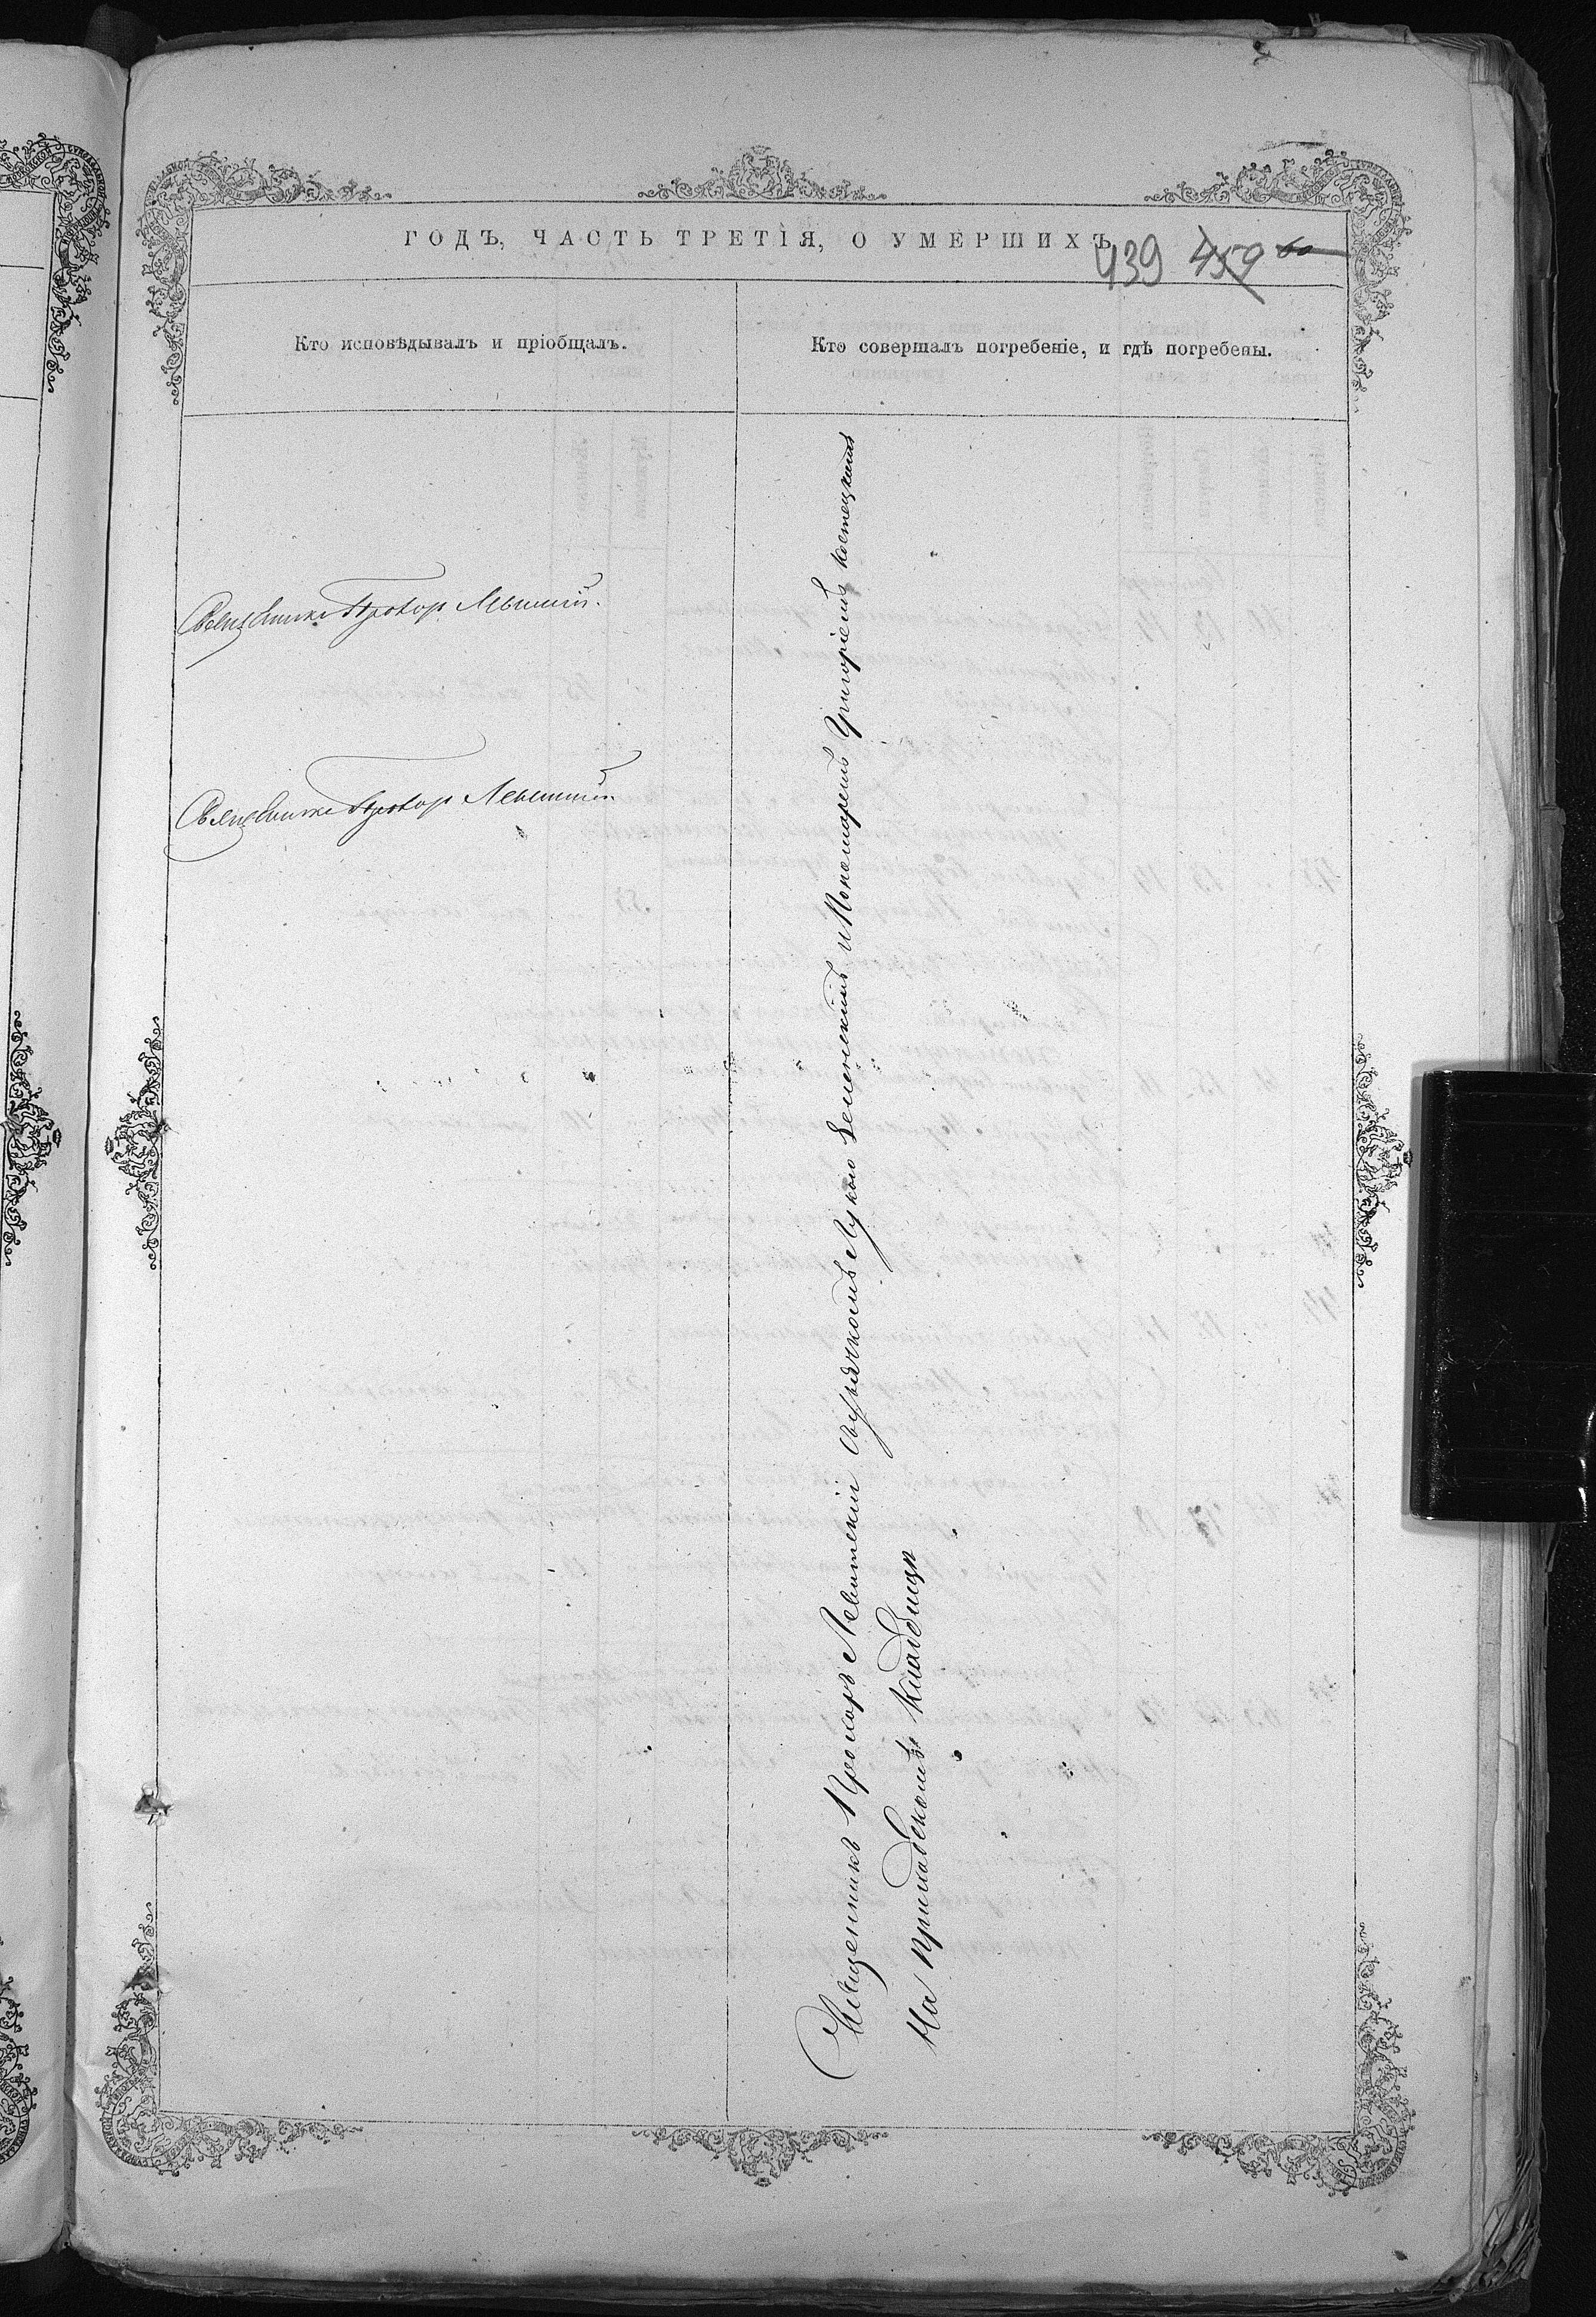 ГОДЪ, ЧАСТЬ ТРЕТІЯ, О УМЕРШИХЪ
439 459 60
Кто исповѣдывалъ и пріобщалъ.
Кто совершалъ погребеніе, и гдѣ погребены.
Священникъ Прохоръ
Священникъ Прохоръ
Священникъ Прохоръ Левитскій съ дьячкомъ Лукою Зеленскимъ и Пономаремъ Григоріемъ Костецкимъ
На приходскомъ кладбищѣ